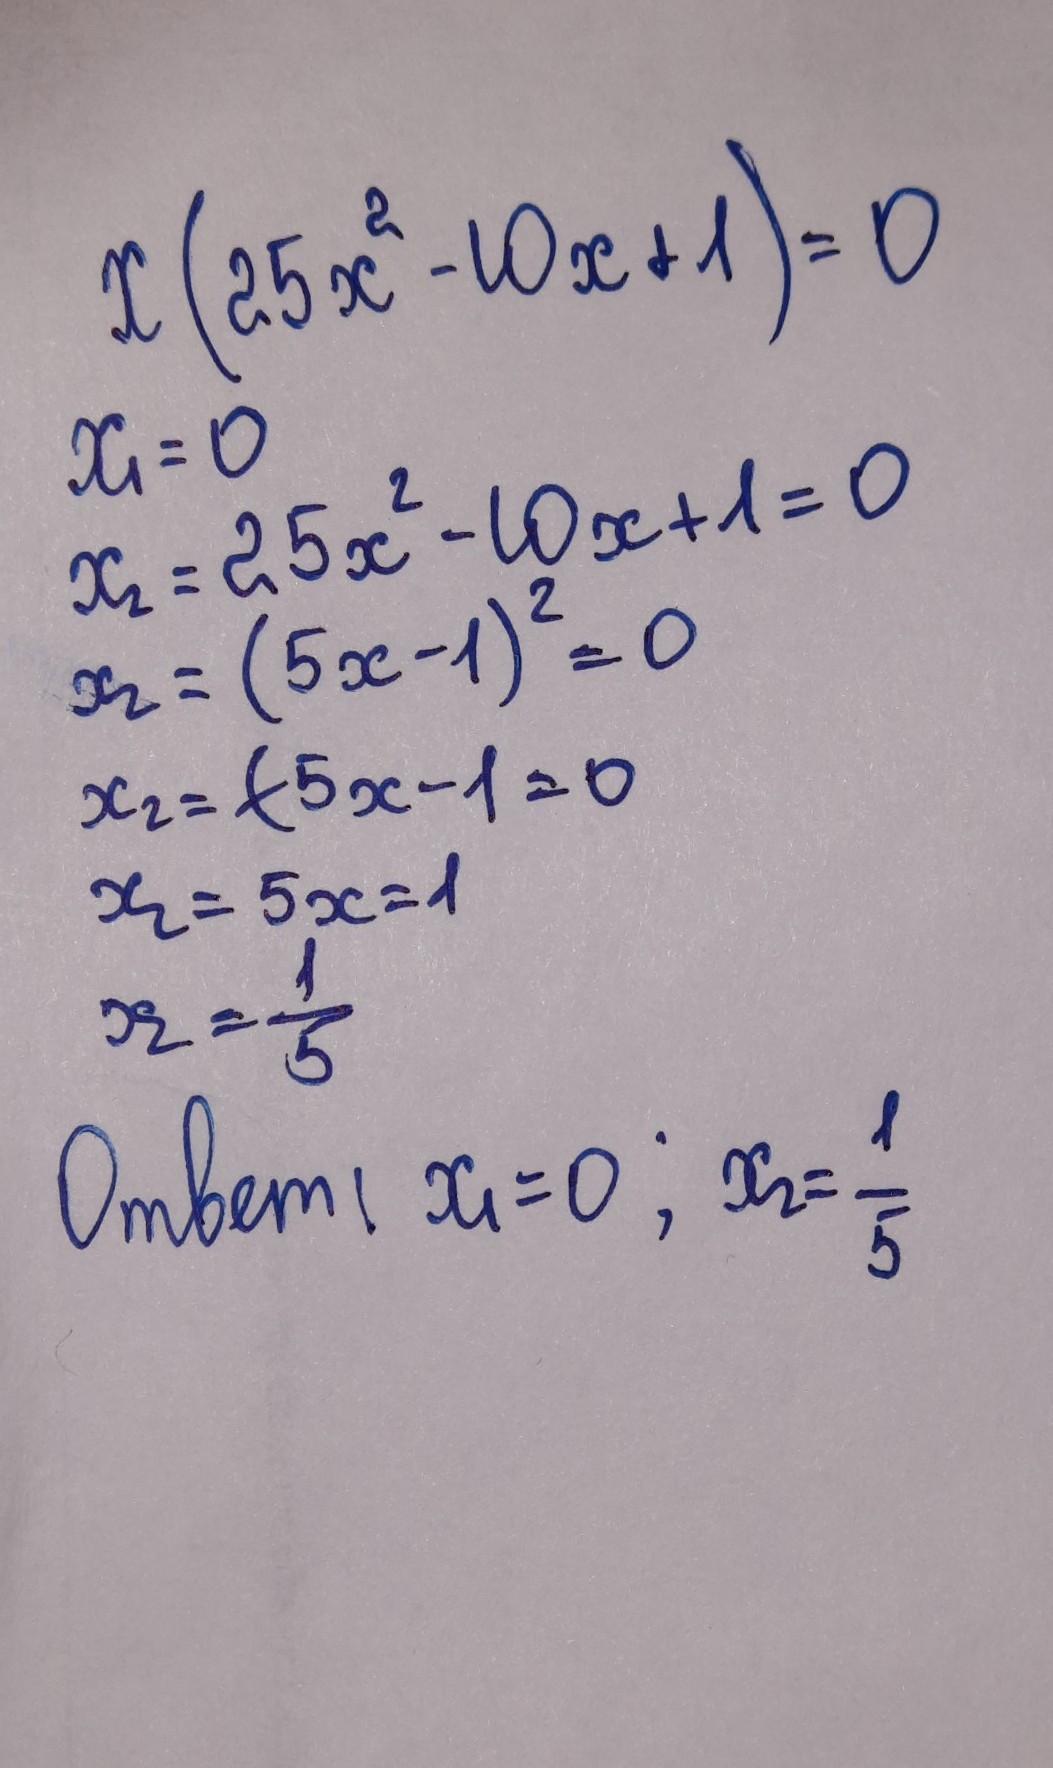 x(25x²-10x+1)=0
x₁=0
x₂=25x²-10x+1=0
x₂=(5x-1)²=0
x₂=5x-1=0
x₂=5x=1
x₂=1/5
Ответ: x₁=0; x₂=1/5